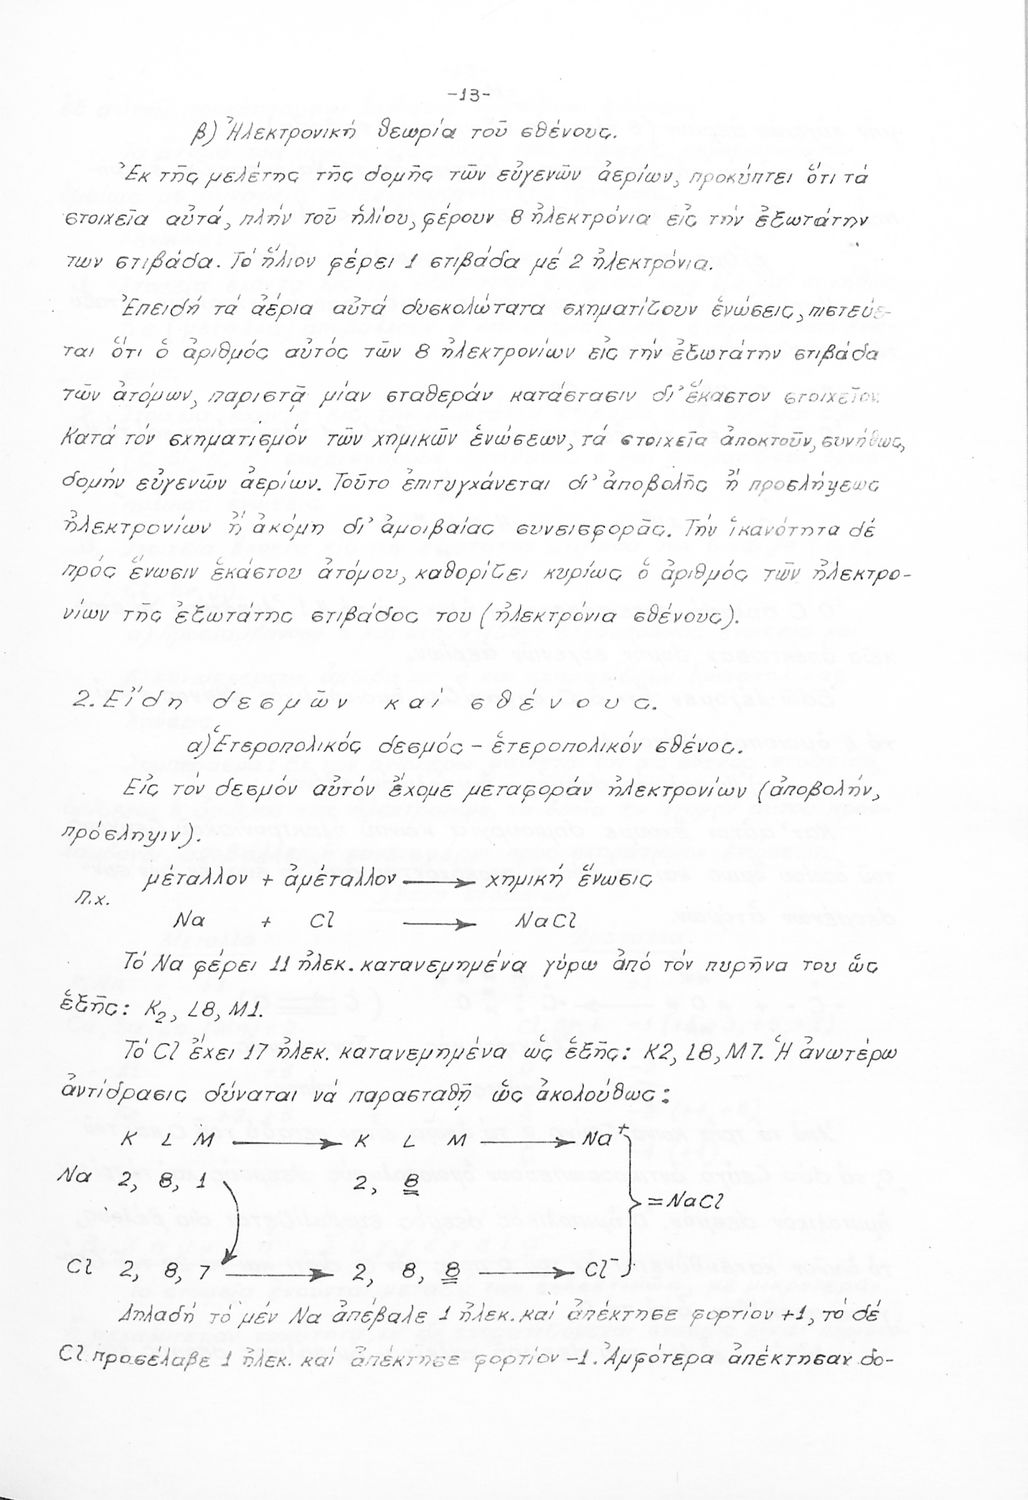 -13-
β) Ἠλεκτρονική θεωρία τοῦ σθένους.
Ἐκ τῆς μελέτης τῆς δομῆς τῶν εὐγενῶν ἀερίων, προκύπτει ὅτι τά
στοιχεῖα αὐτά, πλήν τοῦ ἡλίου, φέρουν 8 ἠλεκτρόνια εἰς τήν ἐξωτάτην
των στιβάδα. Τό ἥλιον φέρει 1 στιβάδα μέ 2 ἠλεκτρόνια.
Ἐπειδή τά ἀέρια αὐτά δυσκολώτατα σχηματίζουν ἑνώσεις, πιστεύε-
ται ὅτι ὁ ἀριθμός αὐτός τῶν 8 ἠλεκτρονίων εἰς τήν ἐξωτάτην στιβάδα
τῶν ἀτόμων, παριστᾷ μίαν σταθεράν κατάστασιν δι' ἕκαστον στοιχεῖον.
Κατά τόν σχηματισμόν τῶν χημικῶν ἑνώσεων, τά στοιχεῖα ἀποκτοῦν, συνήθως,
δομήν εὐγενῶν ἀερίων. Τοῦτο ἐπιτυγχάνεται δι' ἀποβολῆς ἤ προσλήψεως
ἠλεκτρονίων ἤ ἀκόμη δι' ἀμοιβαίας συνεισφορᾶς. Τήν ἱκανότητα δέ
πρός ἕνωσιν ἑκάστου ἀτόμου, καθορίζει κυρίως ὁ ἀριθμός τῶν ἠλεκτρο-
νίων τῆς ἐξωτάτης στιβάδος του (ἠλεκτρόνια σθένους).
2. Εἴδη δεσμῶν καί σθένους.
α) Ἑτεροπολικός δεσμός - ἑτεροπολικόν σθένος.
Εἰς τόν δεσμόν αὐτόν ἔχομε μεταφοράν ἠλεκτρονίων (ἀποβολήν,
πρόσληψιν).
μέταλλον + ἀμέταλλον ⟶ χημική ἕνωσις
Π.χ.
Na + Cl ⟶ NaCl
Τό Na φέρει 11 ἠλεκ. κατανεμημένα γύρω ἀπό τόν πυρῆνα του ὡς
ἑξῆς: K₂, L8, M1.
Τό Cl ἔχει 17 ἠλεκ. κατανεμημένα ὡς ἑξῆς: K2, L8, M7. Ἡ ἀνωτέρω
ἀντίδρασις δύναται νά παρασταθῇ ὡς ἀκολούθως:
K L M ⟶ K L M ⟶ Na⁺
Na 2, 8, 1 2, 8 = NaCl
Cl 2, 8, 7 ⟶ 2, 8, 8 ⟶ Cl⁻
Δηλαδή τό μέν Na ἀπέβαλε 1 ἠλεκ. καί ἀπέκτησε φορτίον +1, τό δέ
Cl προσέλαβε 1 ἠλεκ. καί ἀπέκτησε φορτίον -1. Ἀμφότερα ἀπέκτησαν δο-